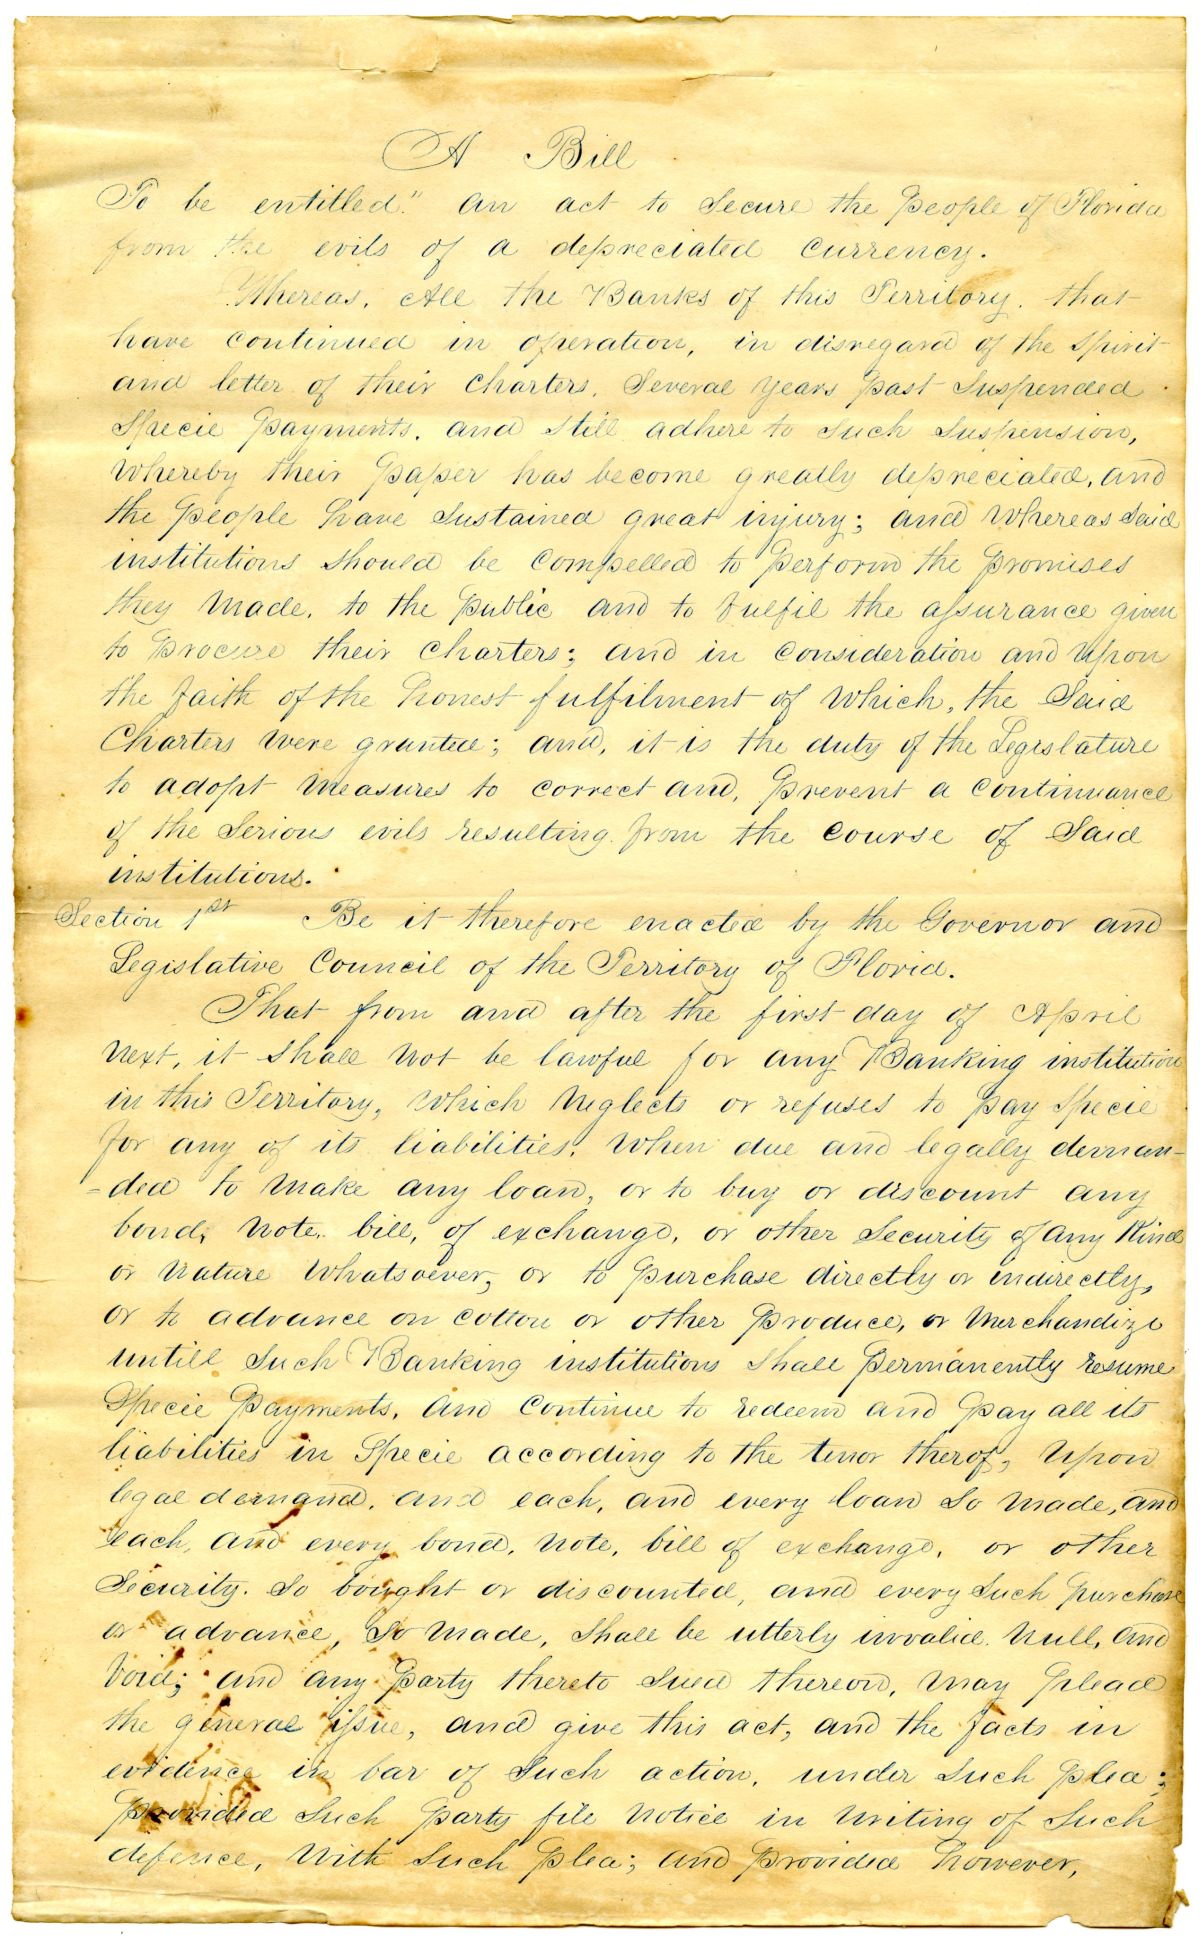 A Bill
To be entitled." an act to Secure the People of Florida
from the evils of a depreciated currency.
Whereas, All the Banks of this Territory, that
have continued in operation, in disregard of the spirit
and letter of their Charters, Several years past Suspended
Specie Payments, and still adhere to such suspension,
whereby their Paper has become greatly depreciated, and
the People have sustained great injury; and Whereas Said
institutions should be compelled to Perform the Promises
they made, to the Public and to fulfil the assurance given
to Procure their Charters; and in consideration and upon
the faith of the honest fulfilment of which, the Said
Charters were granted; and, it is the duty of the Legislature
to adopt measures to correct and, Prevent a continuance
of the serious evils resulting from the course of Said
institutions.
Section 1st Be it therefore enacted by the Governor and
Legislative Council of the Territory of Florid.
That from and after the first day of April
next, it shall not be lawful for any Banking institution
in this Territory, which neglects or refuses to Pay Specie
for any of its liabilities, when due and legally deman-
-ded to make any loan, or to buy or discount any
bond, note, bill, of exchange, or other Security of any Kind
or nature whatsoever, or to Purchase directly or indirectly,
or to advance on cotton or other Produce, or Merchandize
untill such Banking institutions shall Permanently resume
Specie Payments, and continue to redeem and Pay all its
liabilities in Specie according to the tenor therof, upon
legal demand, and each, and every loan so made, and
each, and every bond, note, bill of exchange, or other
Security. So bought or discounted, and every such Purchase
or advance, So made, shall be utterly invalid. Null, and
Void; and any Party thereto Sued thereon, may Plead
the general issue, and give this act, and the facts in
evidence in bar of such action, under such Plea;
Provided such Party file notice in writing of such
defence, with such Plea; and Provided however,